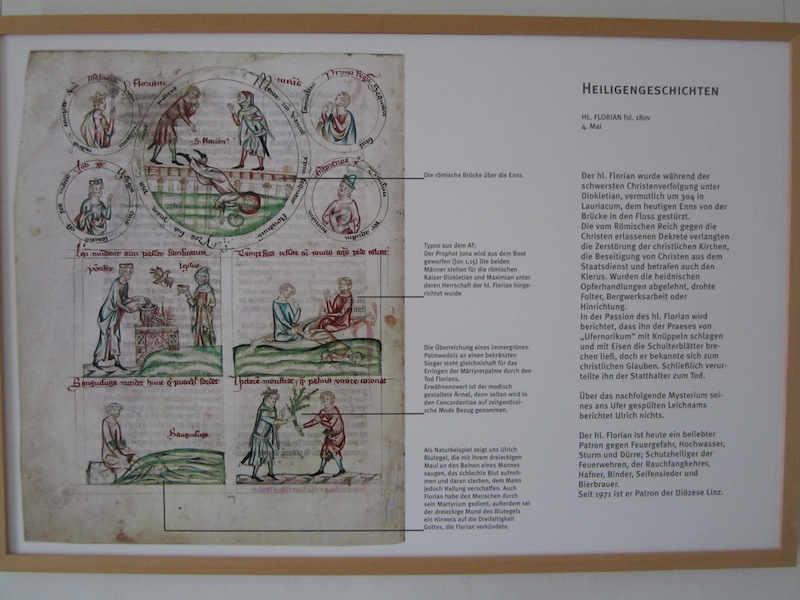 HEILIGENGESCHICHTEN
HL. FLORIAN fol. 180v
4. Mai
Der hl. Florian wurde während der
schwersten Christenverfolgung unter
Diokletian, vermutlich um 304 in
Lauriacum, dem heutigen Enns von der
Brücke in den Fluss gestürzt.
Die vom Römischen Reich gegen die
Christen erlassenen Dekrete verlangten
die Zerstörung der christlichen Kirchen,
die Beseitigung von Christen aus dem
Staatsdienst und betrafen auch den
Klerus. Wurden die heidnischen
Opferhandlungen abgelehnt, drohte
Folter, Bergwerksarbeit oder
Hinrichtung.
In der Passion des hl. Florian wird
berichtet, dass ihn der Praeses von
„Ufernorikum“ mit Knüppeln schlagen
und mit Eisen die Schulterblätter bre-
chen ließ, doch er bekannte sich zum
christlichen Glauben. Schließlich verur-
teilte ihn der Statthalter zum Tod.
Über das nachfolgende Mysterium sei-
nes ans Ufer gespülten Leichnams
berichtet Ulrich nichts.
Der hl. Florian ist heute ein beliebter
Patron gegen Feuergefahr, Hochwasser,
Sturm und Dürre; Schutzheiliger der
Feuerwehren, der Rauchfangkehrer,
Hafner, Binder, Seifensieder und
Bierbrauer.
Seit 1971 ist er Patron der Diözese Linz.
Die römische Brücke über die Enns
Typos aus dem AT:
Der Prophet Jona wird aus dem Boot
geworfen (Jon 1,15) Die beiden
Männer stehen für die römischen
Kaiser Diokletian und Maximian unter
deren Herrschaft der hl. Florian hinge-
richtet wurde
Die Überreichung eines immergrünen
Palmwedels an einen bekränzten
Sieger steht gleichnishaft für das
Erringen der Märtyrerpalme durch den
Tod Florians.
Erwähnenswert ist der modisch
gestaltete Ärmel, denn selten wird in
den Concordantiae auf zeitgenössi-
sche Mode Bezug genommen.
Als Naturbeispiel zeigt uns Ulrich
Blutegel, die mit ihrem dreieckigen
Maul an den Beinen eines Mannes
saugen, das schlechte Blut aufneh-
men und daran sterben, dem Mann
jedoch Heilung verschaffen. Auch
Florian habe den Menschen durch
sein Martyrium gedient, außerdem sei
der dreieckige Mund des Blutegels
ein Hinweis auf die Dreifaltigkeit
Gottes, die Florian verkündete.